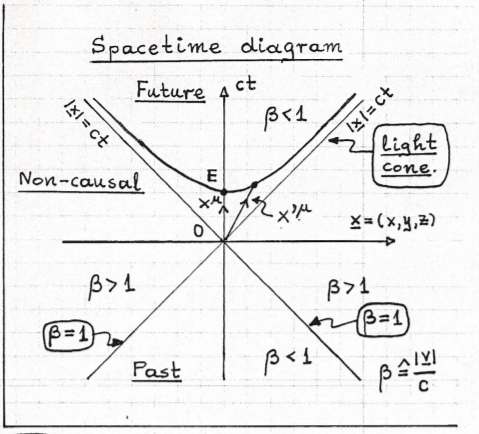 Spacetime diagram
Future
ct
|x|=ct
β<1
|x|=ct
light
cone.
Non-causal
E
x^μ
x'^μ
x=(x,y,z)
O
β>1
β>1
β=1
β=1
Past
β<1
β≙|v|/c